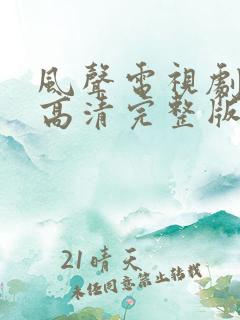 風聲電視劇
高清完整版
21晴天
未任同意禁止转载